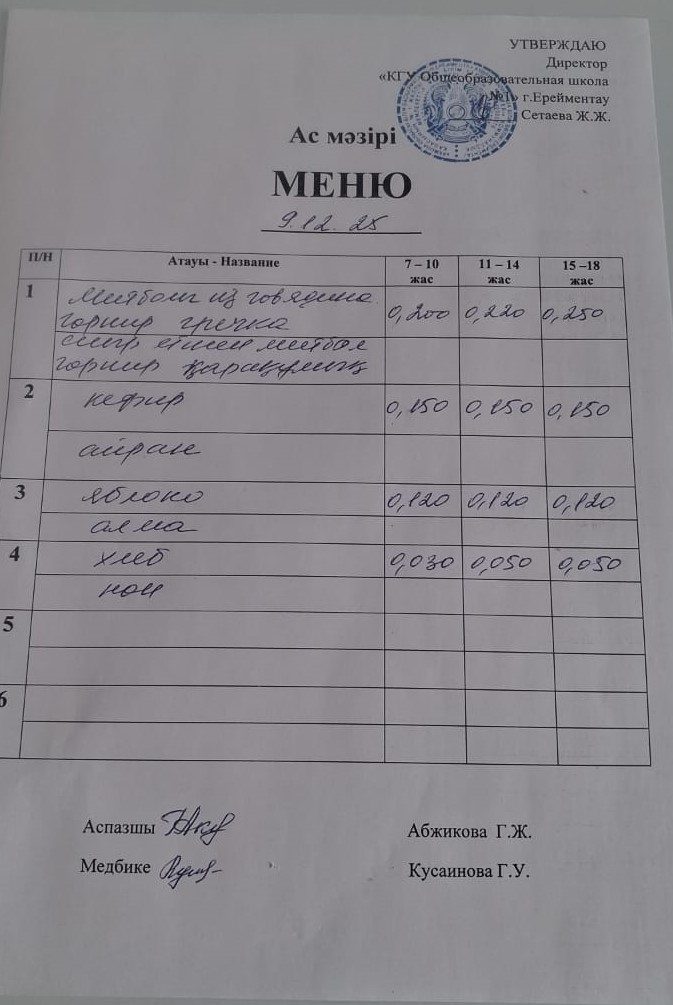 УТВЕРЖДАЮ
Директор
«КГУ Общеобразовательная школа
№1» г.Ерейментау
Сетаева Ж.Ж.
Ас мәзірі
МЕНЮ
9.12.25
П/Н Атауы - Название 7 – 10 жас 11 – 14 жас 15 –18 жас
1 Митболы из говядина 0,200 0,220 0,250
горнир гречка
сиыр етінен митбол
горнир қарақұмық
2 кефир 0,150 0,150 0,150
айран
3 яблоко 0,120 0,120 0,120
алма
4 хлеб 0,030 0,050 0,050
нан
5
6
Аспазшы Абжикова Г.Ж.
Медбике Кусаинова Г.У.